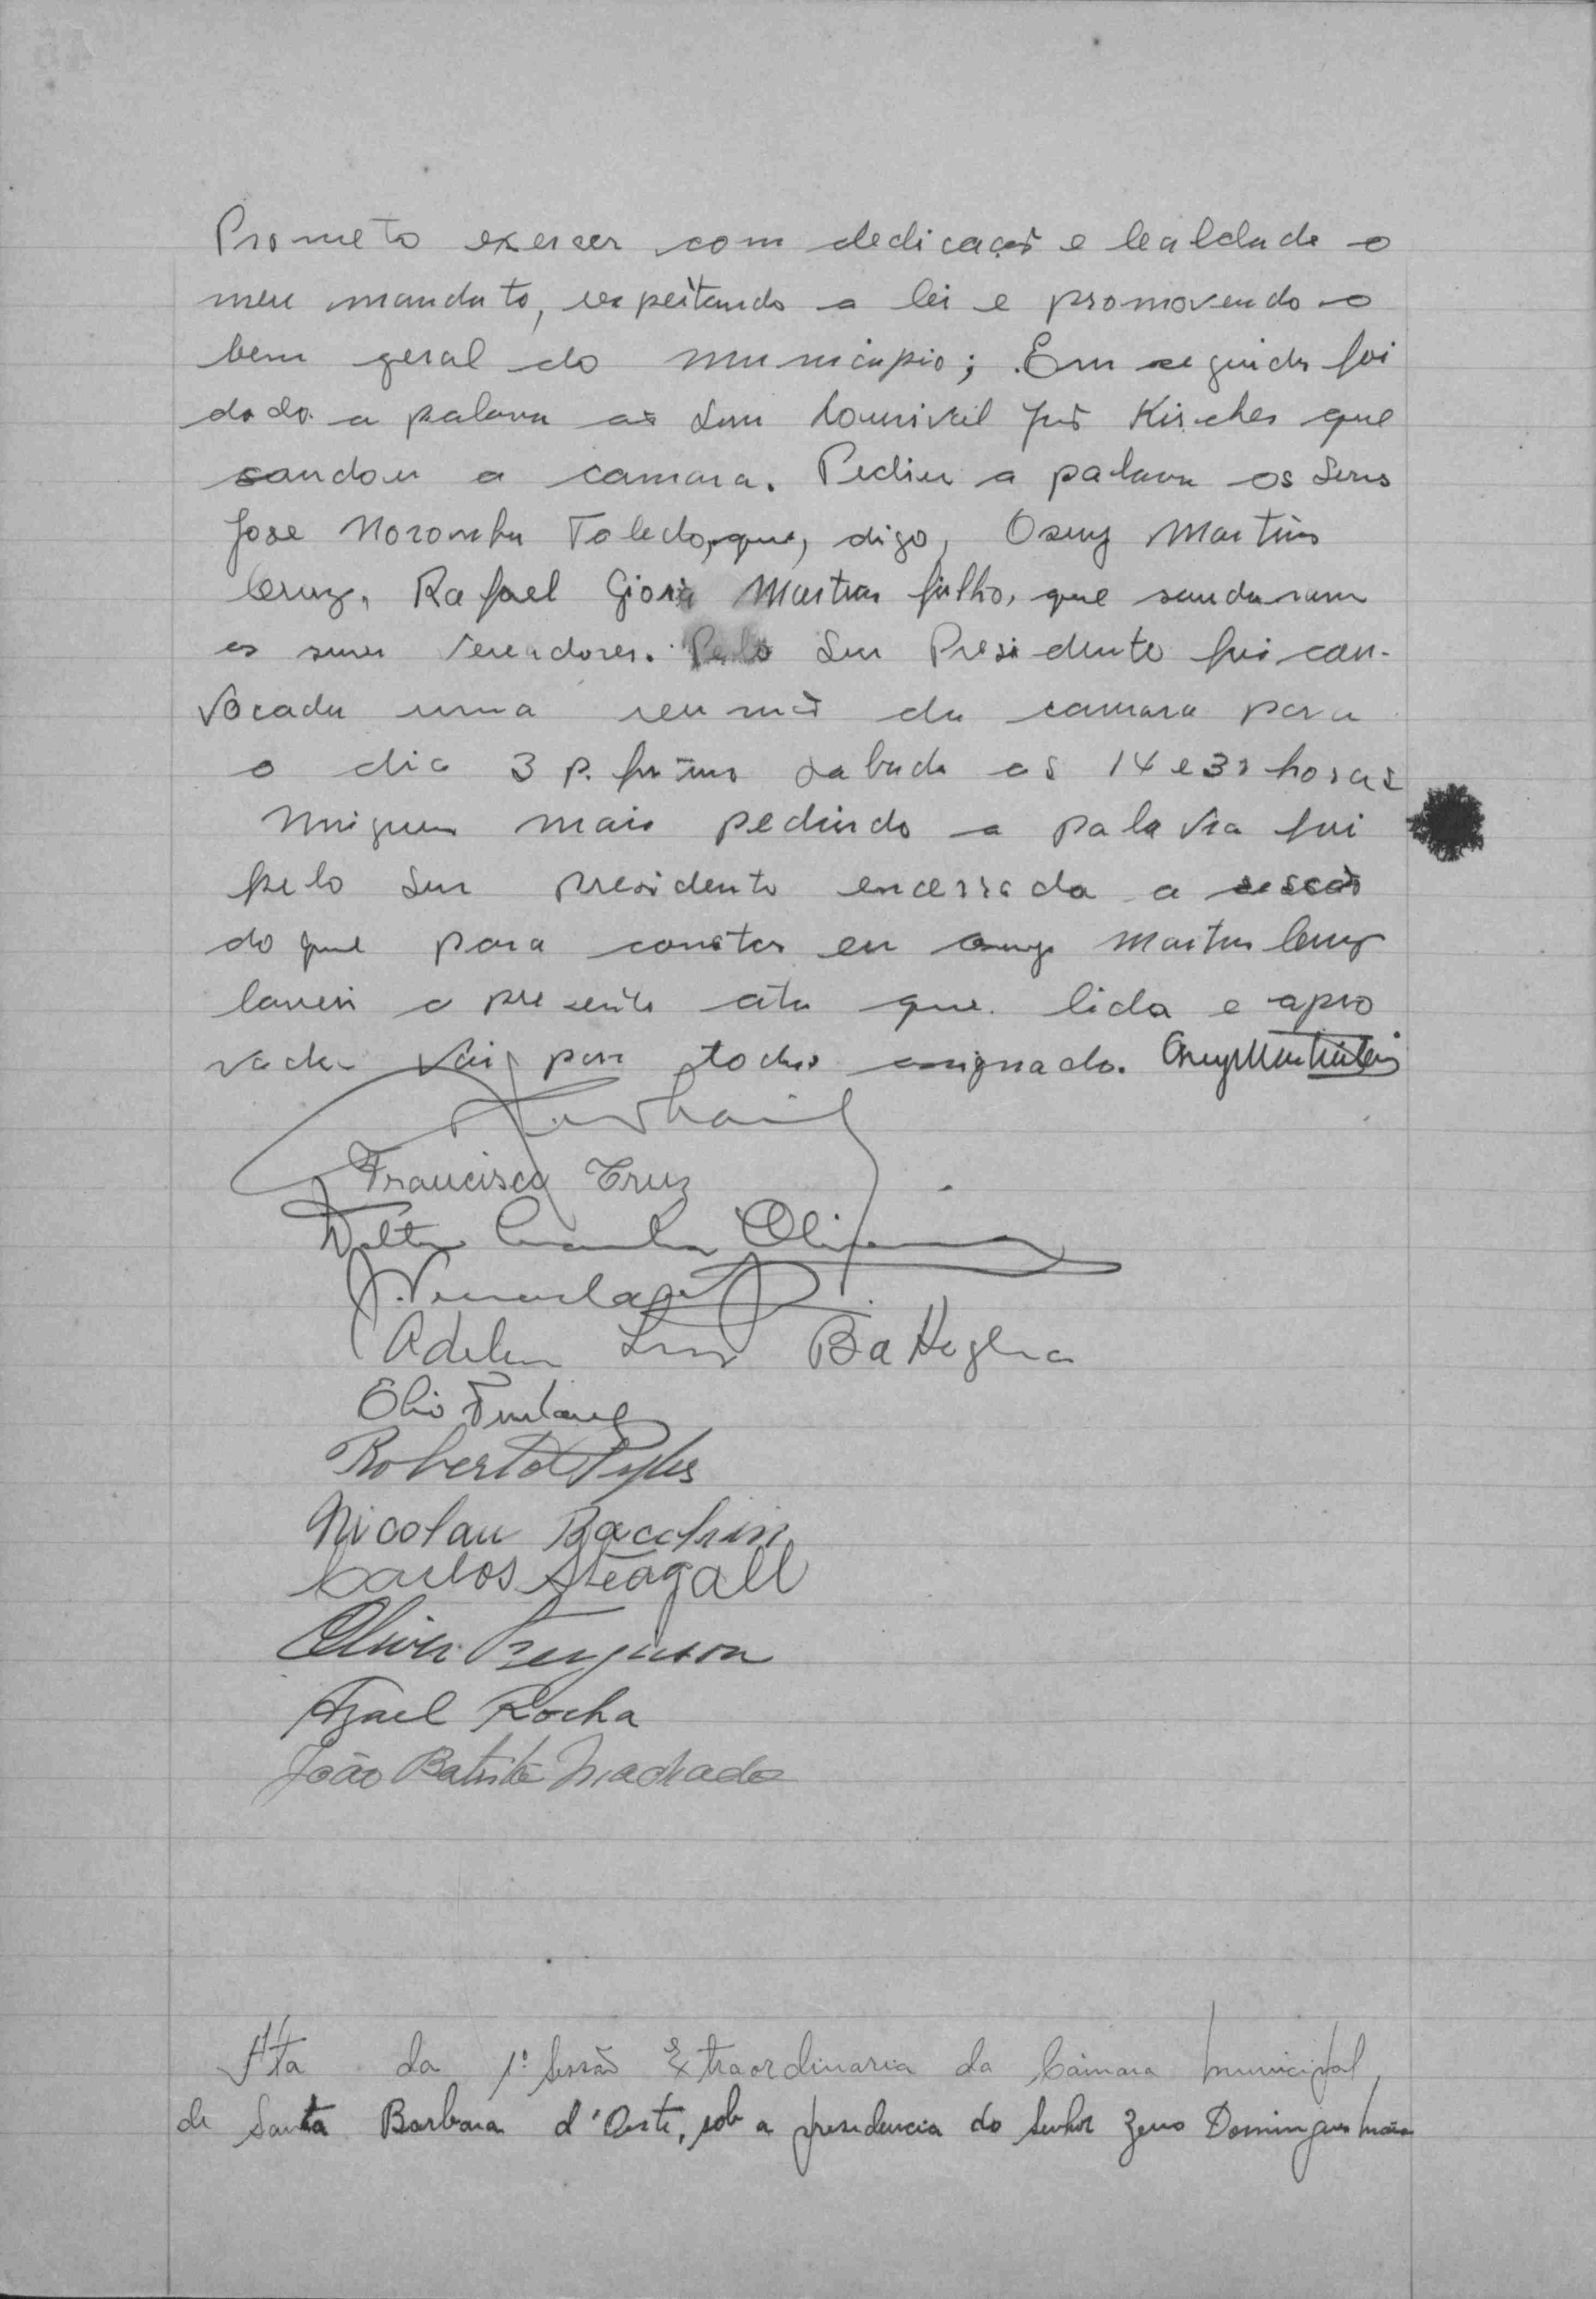 Prometo exercer com dedicação e lealdade o
meu mandato, respeitando a lei e promovendo o
bem geral do municipio; Em seguida foi
dado a palavra ao Snr Lourival José Kircher que
saudou a camara. Pediu a palavra os Snrs
Jose Noronha Toledo, que, digo, Osny Martins
Cruz, Rafael Martins filho, que saudaram
os snrs Vereadores. Pelo Snr Presidente foi con-
vocada uma reunião da camara para
o dia 3 p. sabado as 14 e 30 horas
Ninguem mais pedindo a palavra foi
pelo Snr presidente encerrada a sessão
do que para constar eu Osny Martins Cruz
lavrei a presente ata que lida e apro
vada vai por todos assignada.
Francisco Cruz
Oliveira
Luiz Battaglia
Elio
Roberto Pyles
Nicolau Bacchin
Carlos Steagall
Ferguson
Azael Rocha
João Batista Machado
Ata da 1ª Sessão Extraordinaria da Câmara Municipal,
de Santa Barbara d'Oeste, sob a presidencia do Senhor Zeno Domingues Maia